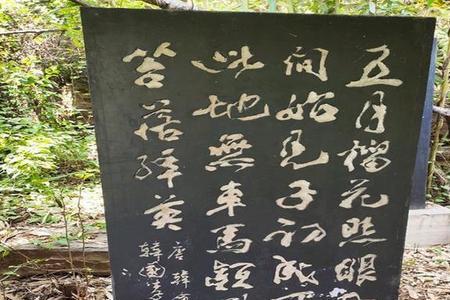 五月榴花照眼明
間始見子初成
此地無車馬顛
苔落絳英
唐韓
韓國